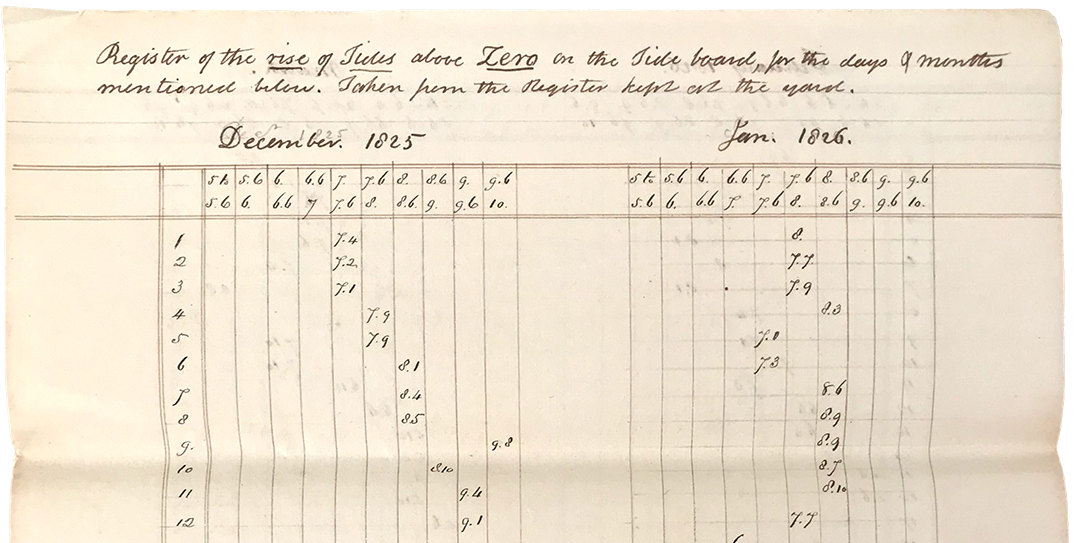 Register of the rise of Tides above Zero on the Tide board, for the days & months
mentioned below. Taken from the Register kept at the yard.
December. 1825 Jan. 1826.
5 to 5.6 6. 6.6 7. 7.6 8. 8.6 9. 9.6 5 to 5.6 6. 6.6 7. 7.6 8. 8.6 9. 9.6
5.6 6. 6.6 7 7.6 8. 8.6 9. 9.6 10. 5.6 6. 6.6 7. 7.6 8. 8.6 9. 9.6 10.
1 7.4 8.
2 7.2 7.7
3 7.1 7.9
4 7.9 8.3
5 7.9 7.1
6 8.1 7.3
7 8.4 8.6
8 8.5 8.9
9. 9.8 8.9
10 8.10 8.7
11 9.4 8.10
12 9.1 7.7